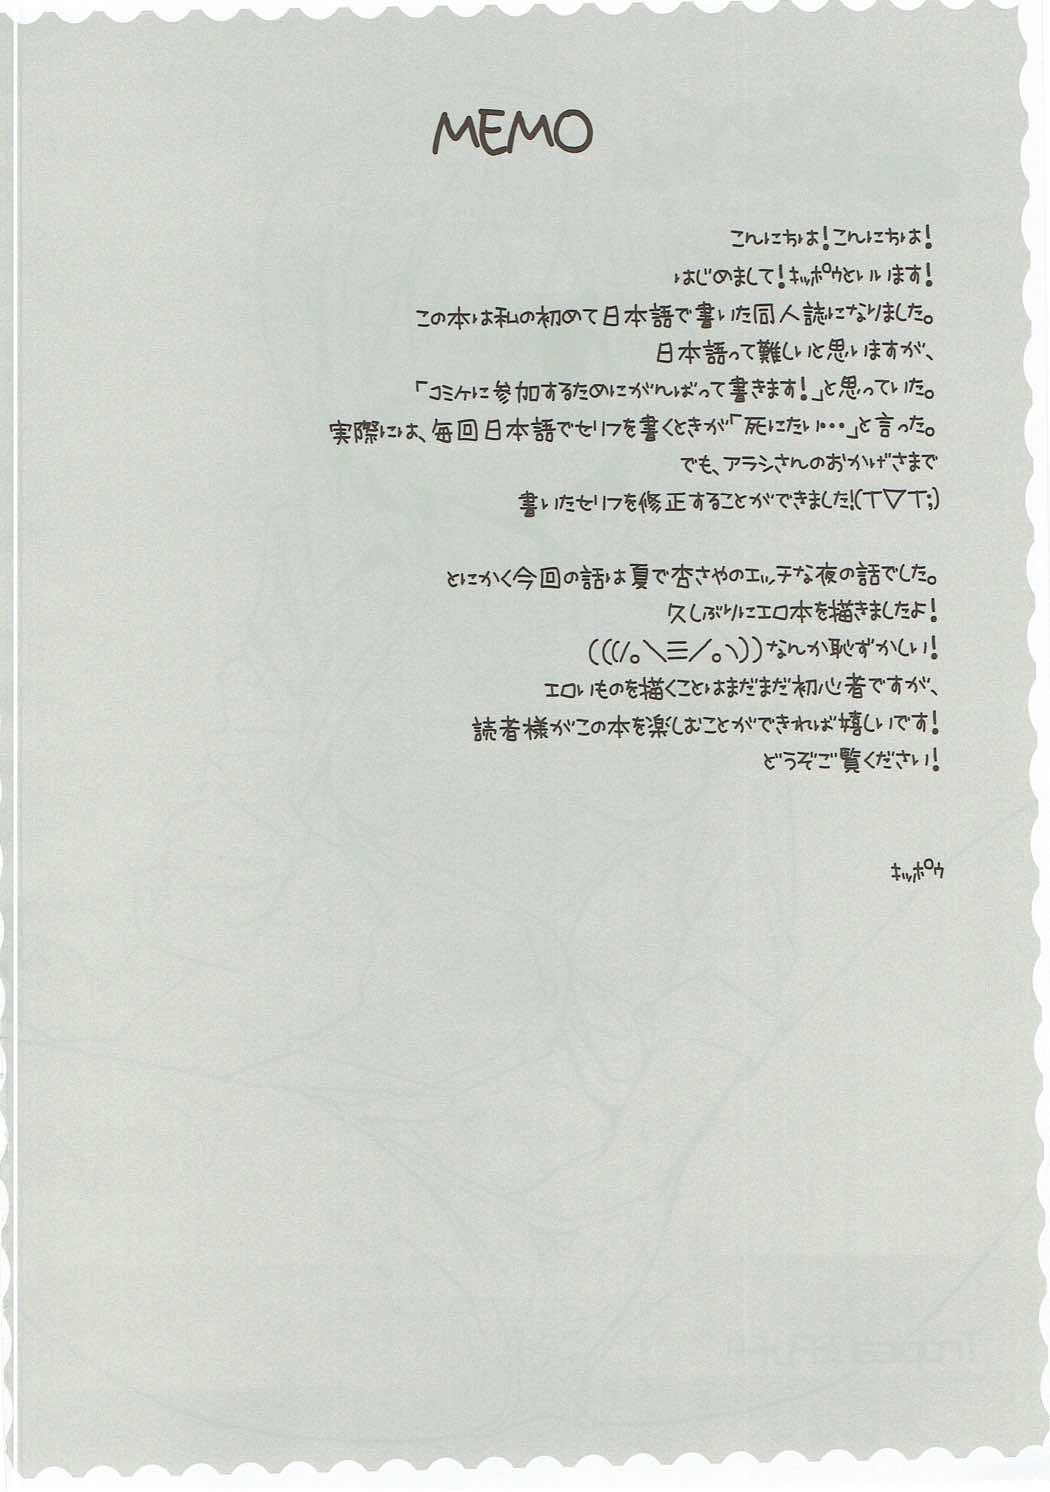 MEMO
こんにちは！こんにちは！
はじめまして！キッポウといいます！
この本は私の初めて日本語で書いた同人誌になりました。
日本語って難しいと思いますが、
「コミケに参加するためにがんばって書きます！」と思っていた。
実際には、毎回日本語でセリフを書くときが「死にたい・・・」と言った。
でも、アラシさんのおかげさまで
書いたセリフを修正することができました！(T▽T;)
とにかく今回の話は夏で杏さやのエッチな夜の話でした。
久しぶりにエロ本を描きましたよ！
(((/。＼三／。\))なんか恥ずかしい！
エロいものを描くことはまだまだ初心者ですが、
読者様がこの本を楽しむことができれば嬉しいです！
どうぞご覧ください！
キッポウ